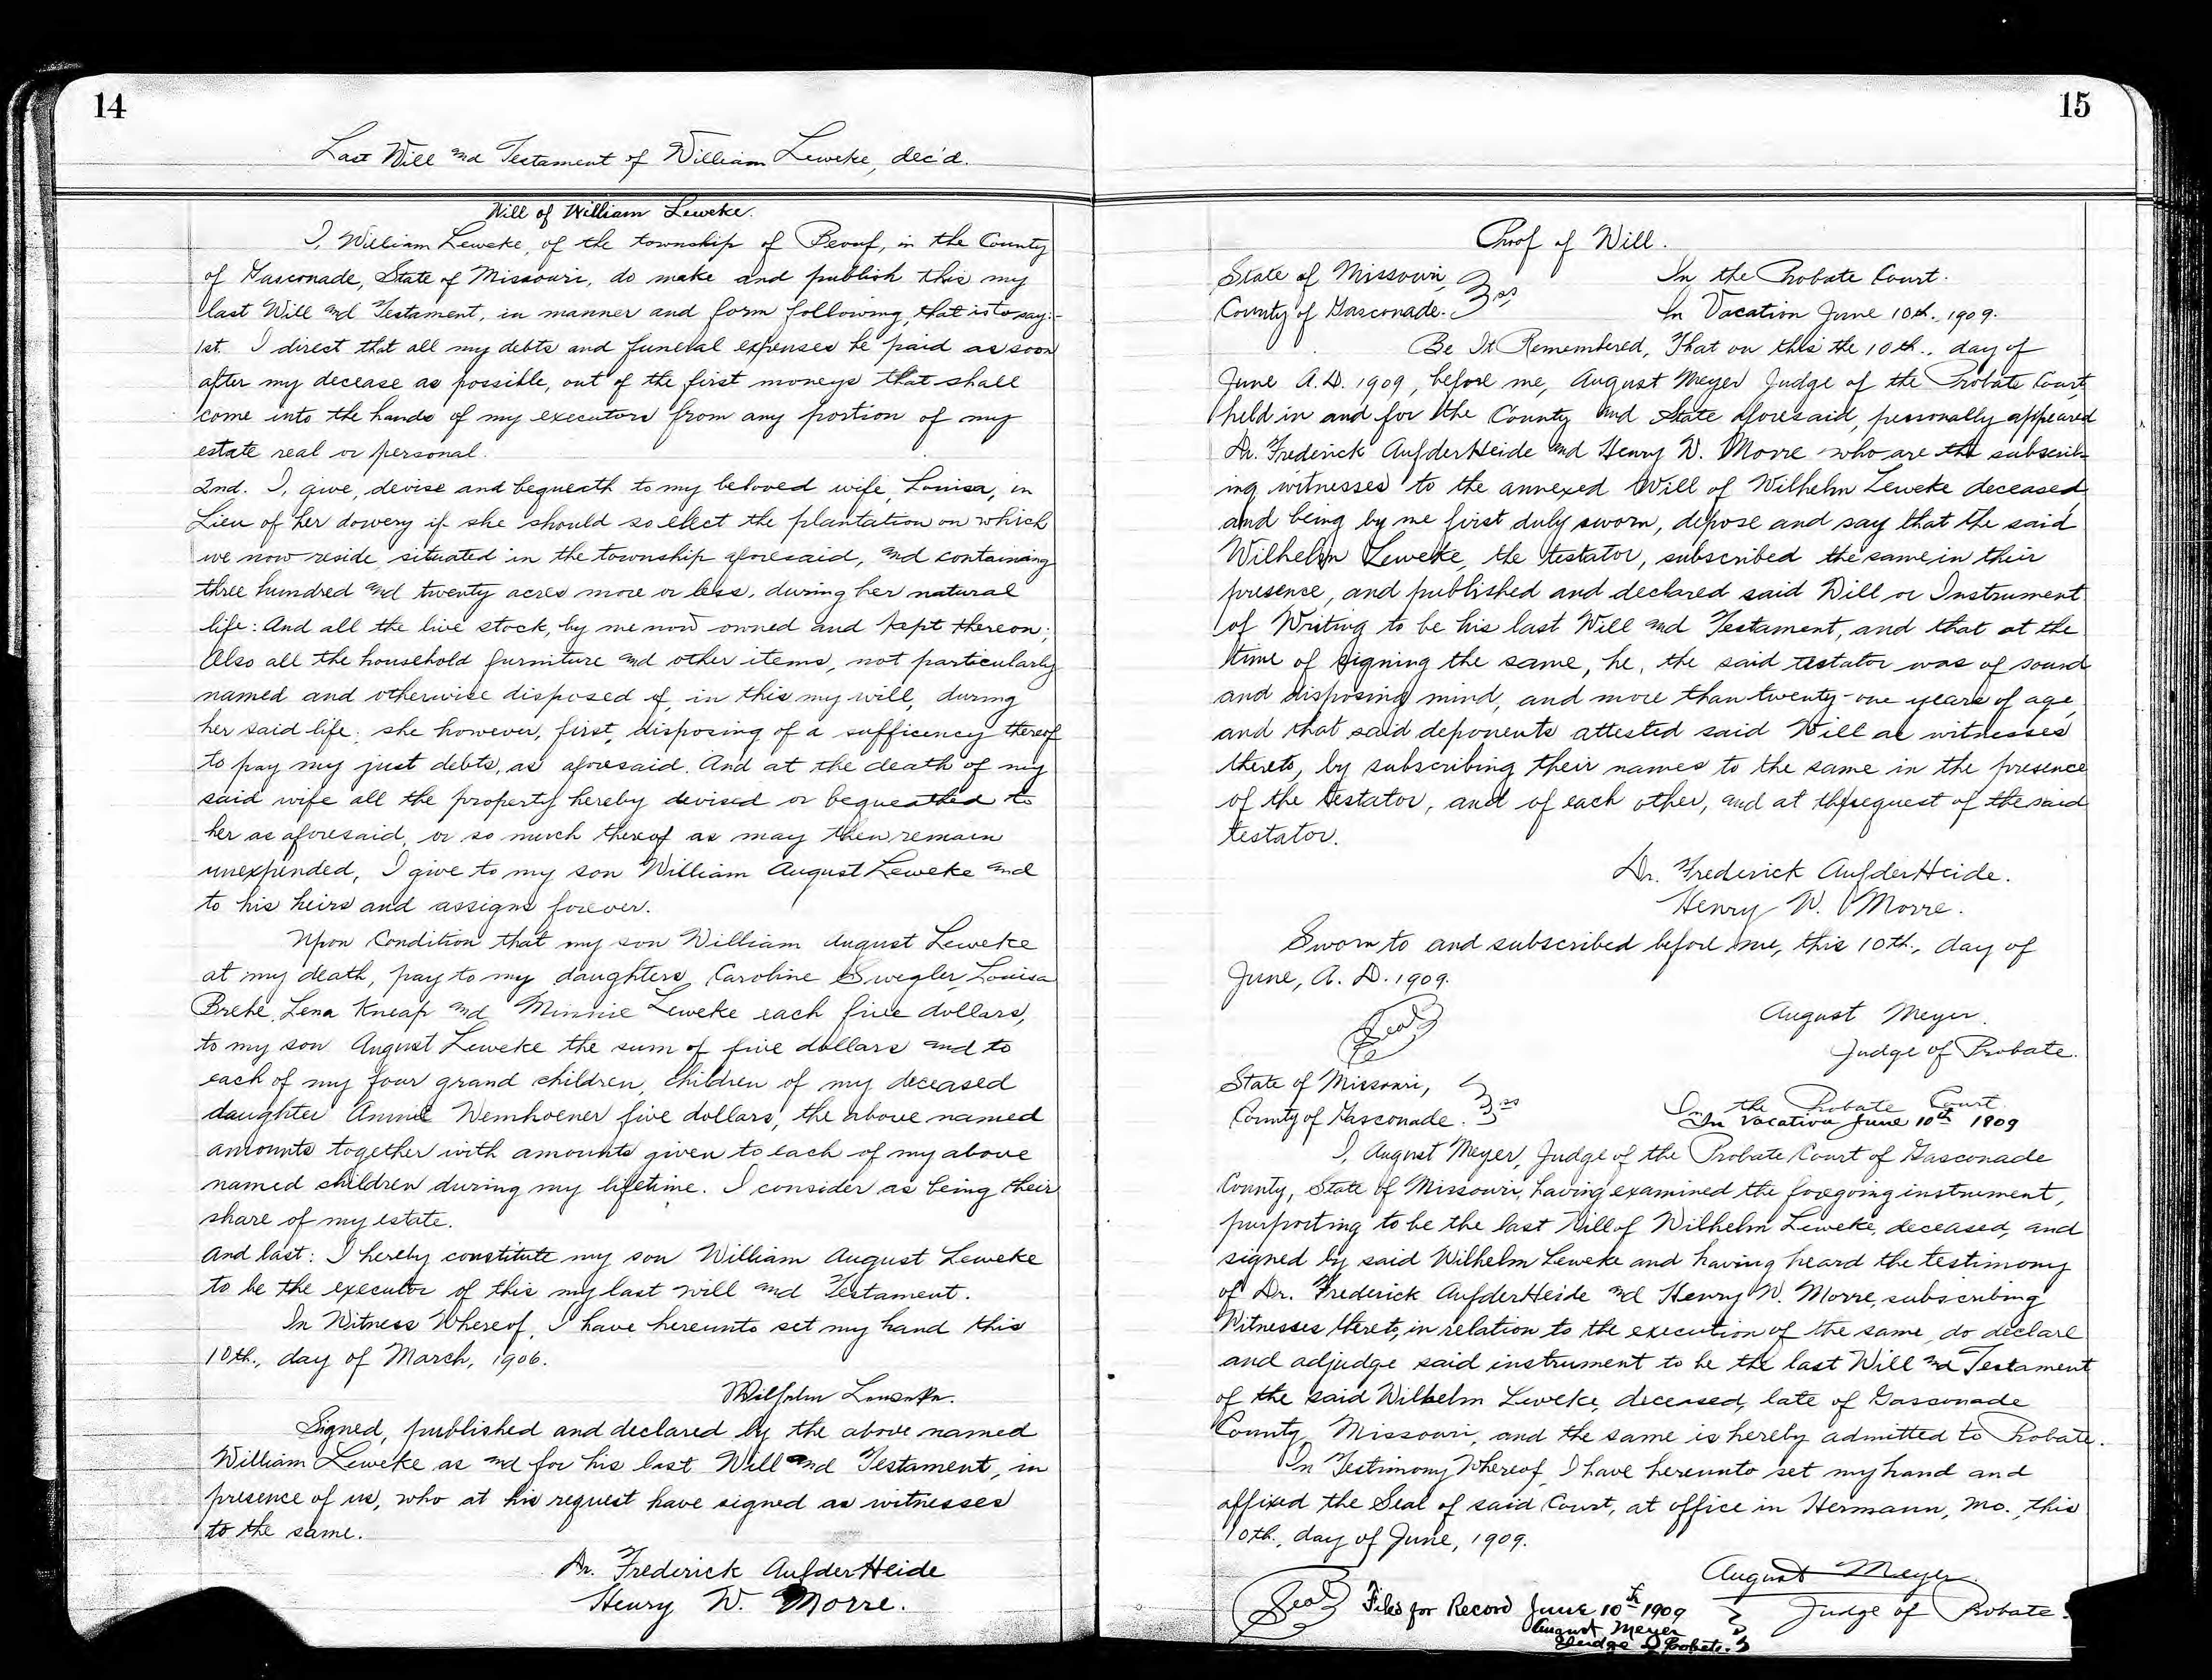 14
Last Will and Testament of William Leweke, dec'd.
Will of William Leweke.
I, William Leweke, of the township of Beouf, in the County
of Gasconade, State of Missouri, do make and publish this my
last Will and Testament, in manner and form following, that is to say:-
1st. I direct that all my debts and funeral expenses be paid as soon
after my decease as possible, out of the first moneys that shall
come into the hands of my executors from any portion of my
estate real or personal.
2nd. I, give, devise and bequeath to my beloved wife, Louisa, in
Lieu of her dowery if she should so elect the plantation on which
we now reside, situated in the township aforesaid, and containing
three hundred and twenty acres more or less, during her natural
life: And all the live stock, by me now owned and kept thereon;
Also all the household furniture and other items, not particularly
named and otherwise disposed of, in this my will, during
her said life; she however, first, disposing of a sufficency thereof
to pay my just debts, as aforesaid. And at the death of my
said wife all the property hereby devised or bequeathed to
her as aforesaid, or so much thereof as may then remain
unexpended, I give to my son William August Leweke and
to his heirs and assigns forever.
Upon Condition that my son William August Leweke
at my death, pay to my daughters, Caroline Swegler, Louisa
Brehe, Lena Kneap and Minnie Leweke each five dollars,
to my son August Leweke the sum of five dollars and to
each of my four grand children, children of my deceased
daughter Annie Wemhoener five dollars, the above named
amounts together with amounts given to each of my above
named children during my lifetime. I consider as being their
share of my estate.
And last: I hereby constitute my son William August Leweke
to be the executor of this my last will and Testament.
In Witness Whereof, I have hereunto set my hand this
10th., day of March, 1906.
Wilhelm Leweke.
Signed, published and declared by the above named
William Leweke as and for his last Will and Testament, in
presence of us, who at his request have signed as witnesses
to the same.
Dr. Frederick AufderHeide
Henry W. Morre.
15
Proof of Will.
State of Missouri,
County of Gasconade. } ss
In the Probate Court.
In Vacation June 10th., 1909.
Be It Remembered, That on this the 10th., day of
June A.D. 1909, before me, August Meyer Judge of the Probate Court,
held in and for the County and State aforesaid, personally appeared
Dr. Frederick AufderHeide and Henry W. Morre who are the subscrib-
ing witnesses to the annexed Will of Wilhelm Leweke deceased,
and being by me first duly sworn, depose and say that the said
Wilhelm Leweke, the testator, subscribed the same in their
presence, and published and declared said Will or Instrument
of Writing to be his last Will and Testament, and that at the
time of signing the same, he, the said testator was of sound
and disposing mind, and more than twenty-one years of age,
and that said deponents attested said Will as witnesses
thereto, by subscribing their names to the same in the presence
of the testator, and of each other, and at the request of the said
testator.
Dr. Frederick AufderHeide.
Henry W. Morre.
Sworn to and subscribed before me, this 10th., day of
June, A.D. 1909.
Seal
August Meyer.
Judge of Probate.
State of Missouri,
County of Gasconade. } ss
In the Probate Court.
In Vacation June 10th 1909
I, August Meyer, Judge of the Probate Court of Gasconade
County, State of Missouri, having examined the foregoing instrument,
purporting to be the last Will of Wilhelm Leweke, deceased, and
signed by said Wilhelm Leweke and having heard the testimony
of Dr. Frederick AufderHeide and Henry W. Morre, subscribing
Witnesses thereto, in relation to the execution of the same, do declare
and adjudge said instrument to be the last Will and Testament
of the said Wilhelm Leweke, deceased, late of Gasconade
County, Missouri, and the same is hereby admitted to Probate.
In Testimony Whereof, I have hereunto set my hand and
affixed the Seal of said Court, at office in Hermann, Mo., this
10th., day of June, 1909.
August Meyer.
Judge of Probate.
Seal
Filed for Record June 10th 1909
August Meyer
Judge of Probate.